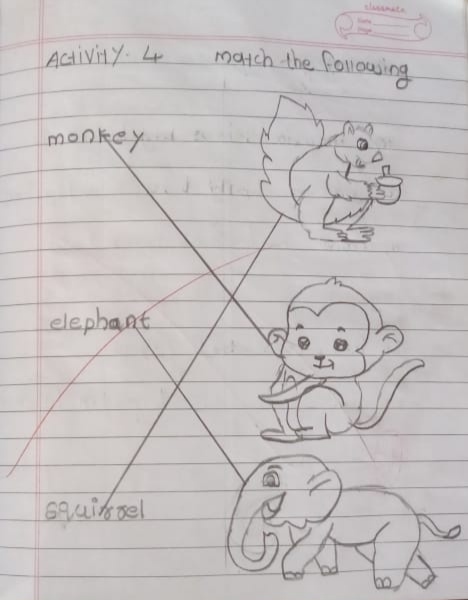 classmate
Date
Page
Activity. 4 match the following
monkey
elephant
squirrel